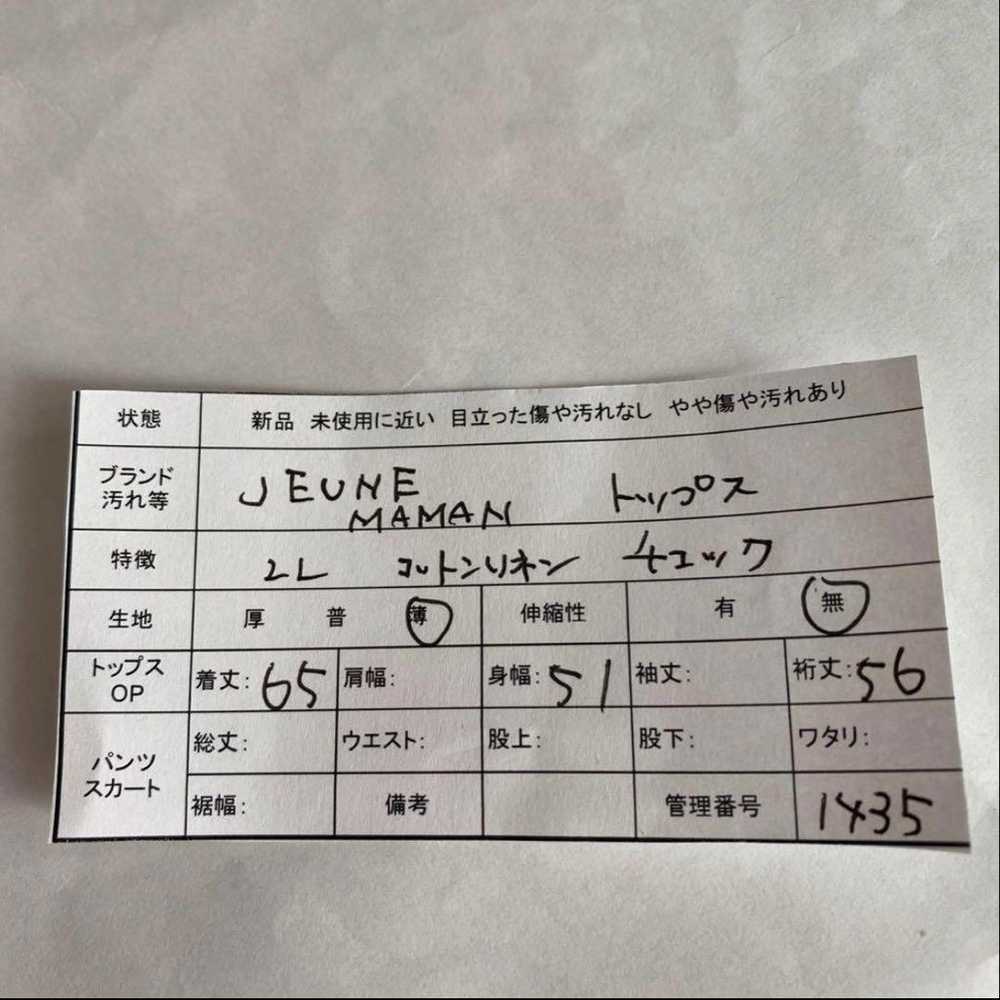 状態 新品 未使用に近い 目立った傷や汚れなし やや傷や汚れあり
ブランド JEUNE トップス
汚れ等 MAMAN
特徴 2L コットンリネン チェック
生地 厚 普 薄 伸縮性 有 無
トップス 着丈:65 肩幅: 身幅:51 袖丈: 裄丈:56
OP
総丈: ウエスト: 股上: 股下: ワタリ:
パンツ
スカート
裾幅: 備考 管理番号 1435